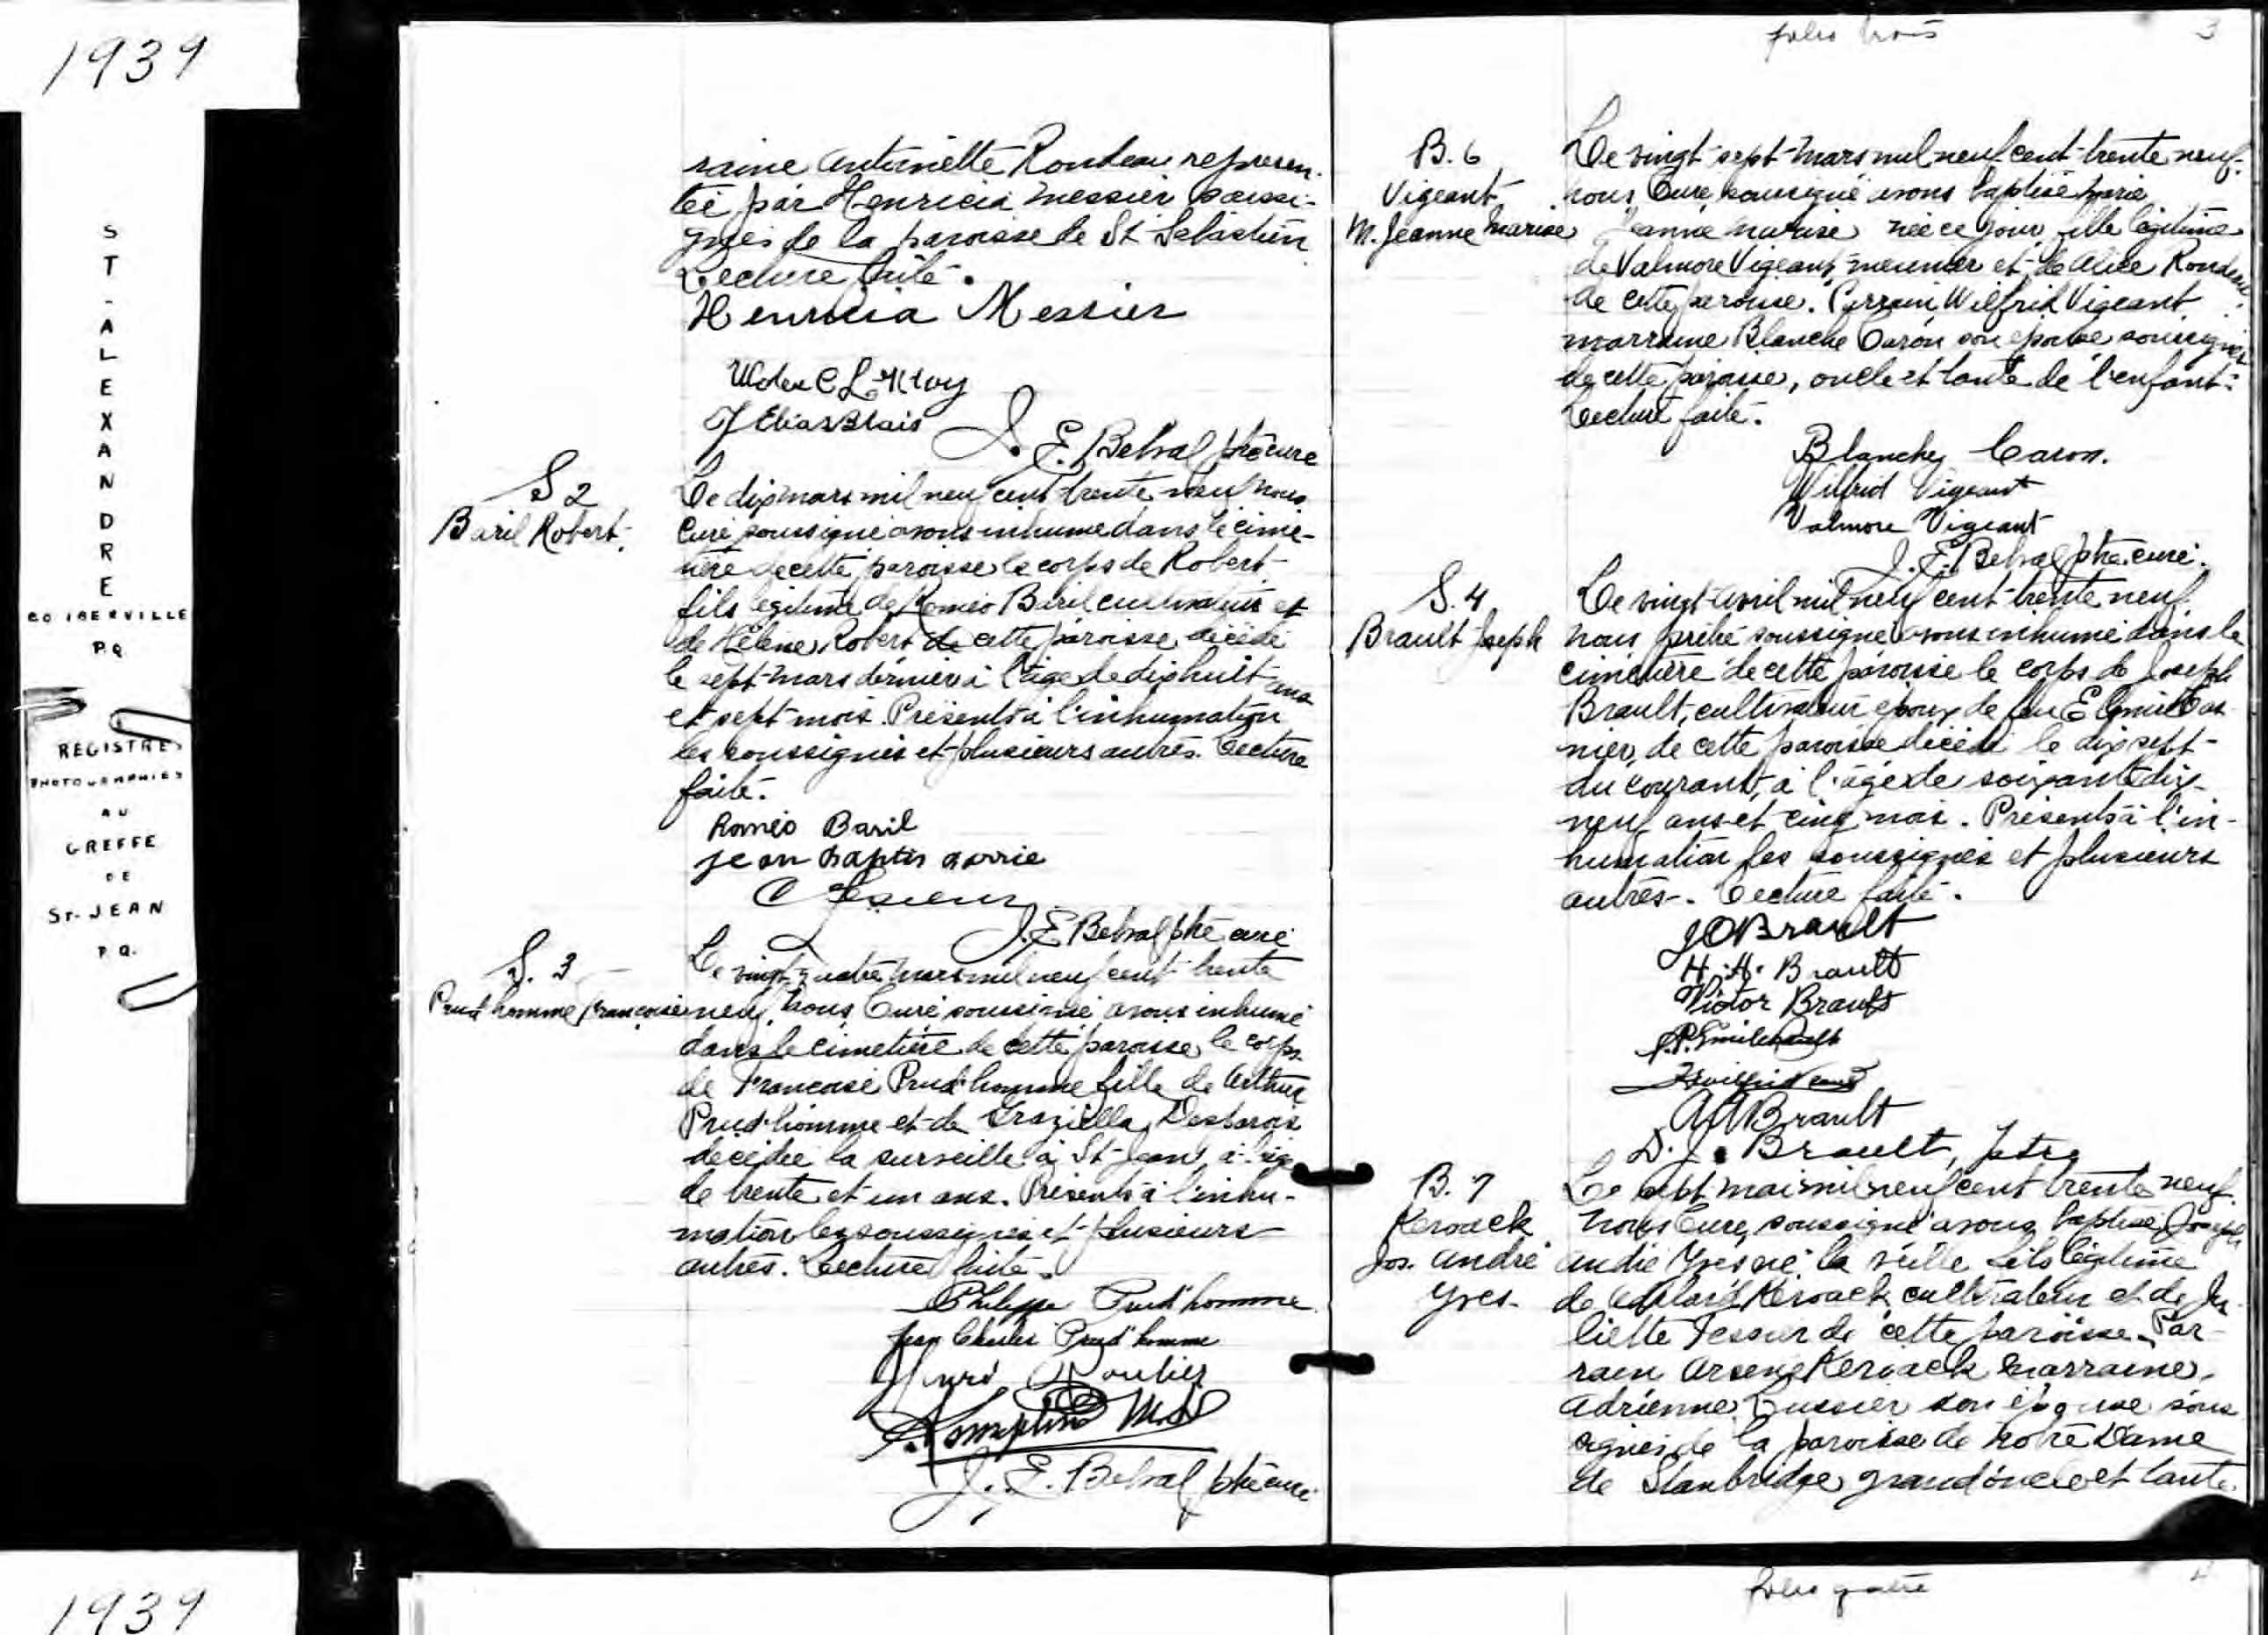 1939
ST-ALEXANDRE
CO IBERVILLE
P.Q
REGISTRES
PHOTOGRAPHIES
AU
GREFFE
DE
St-JEAN
P.Q.
1939
raine Antoinette Rondeau represen-
tée par Henricia Messier soussi-
gnés de la paroisse de St Sébastien
Lecture faite.
Henricia Messier
J Elias Blais
J. E. Belval ptre curé
S 2
Baril Robert
Le dix mars mil neuf cent trente neuf nous
Curé soussigné avons inhumé dans le cime-
tière de cette paroisse le corps de Robert
fils légitime de Roméo Baril cultivateur et
de Hélène Robert de cette paroisse décédé
le sept mars dernier à l'âge de dix huit ans
et sept mois. Présents à l'inhumation
les soussignés et plusieurs autres. Lecture
faite.
Roméo Baril
Jean Baptis
J. E. Belval ptre curé
S. 3
Prud'homme Françoise
Le vingt quatre mars mil neuf cent trente
neuf, nous Curé soussigné avons inhumé
dans le cimetière de cette paroisse le corps
de Françoise Prud'homme fille de Arthur
Prud'homme et de Graziella Desbarois
décédée la surveille à St-Jean à l'âge
de trente et un ans. Présents à l'inhu-
mation les soussignés et plusieurs
autres. Lecture faite.
Philippe Prud'homme
Jean Charles Prud'homme
J. E. Belval ptre curé
folio trois 3
B. 6
Vigeant
M. Jeanne Marise
Le vingt-sept mars mil neuf cent trente neuf
nous Curé soussigné avons baptisé Marie
Jeanne Marise née ce jour fille légitime
de Valmore Vigeant meunier et de Alice Rondeau
de cette paroisse. Parrain Wilfrid Vigeant
marraine Blanche Caron son épouse soussignés
de cette paroisse, oncle et tante de l'enfant.
Lecture faite.
Blanche Caron.
Wilfrid Vigeant
Valmore Vigeant
J. E. Belval ptre. curé.
S. 4
Brault Joseph
Le vingt avril mil neuf cent trente neuf
nous prêtre soussigné avons inhumé dans le
cimetière de cette paroisse le corps de Joseph
Brault, cultivateur époux de feu
nier, de cette paroisse décédé le dix sept
du courant, à l'âge de soixante dix
neuf ans et cinq mois. Présents à l'in-
humation les soussignés et plusieurs
autres. Lecture faite.
J O Brault
H. A. Brault
Victor Brault
A A Brault
D. J. Brault, ptre
B. 7
Keroack
Jos. André
Yves
Le sept mai mil neuf cent trente neuf
nous Curé soussigné avons baptisé Joseph
André Yves né la veille fils légitime
de Keroack cultivateur et de Ju-
liette Tessier de cette paroisse. Par-
rain Arsene Keroack marraine
Adrienne Lussier son épouse sous
signés de la paroisse de Notre Dame
de Stanbridge grand oncle et tante
folio quatre 4